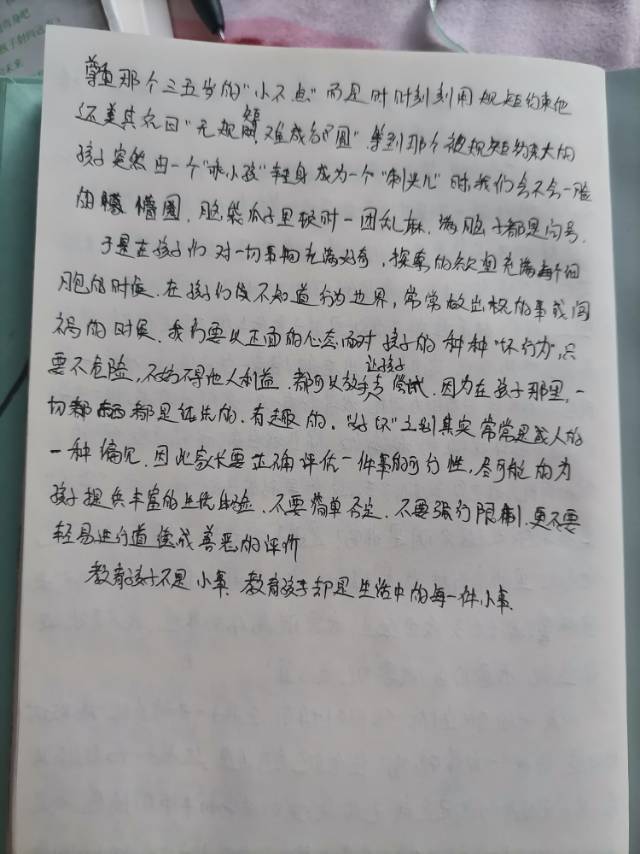 尊重那个三五岁的“小不点”而是时时刻刻用规矩约束他
还美其名曰“无规矩难成方圆”.等到那个被规矩约束大的
孩子突然由一个“乖小孩”转身成为一个“刺头儿”时,我们会不会一脸
的懵圈.脑袋瓜子里顿时一团乱麻.满脑子都是问号.
于是在孩子们对一切事物充满好奇,探索的欲望充满每个细
胞的时候.在孩子们及不知道行为边界,常常做出格的事或闯
祸的时候.我们要以正面的心态面对孩子的种种“坏行为”,只
要不危险,不妨碍他人利益.都可以放手让孩子去尝试.因为在孩子那里,一
切都都是优先的.有趣的.“好坏”之别其实常常是成人的
一种偏见.因此家长要正确评估一件事的可行性,尽可能的为
孩子提供丰富的上体验.不要简单否定.不要强行限制.更不要
轻易进行道德或善恶的评价
教育孩子不是小事.教育孩子却是生活中的每一件小事.